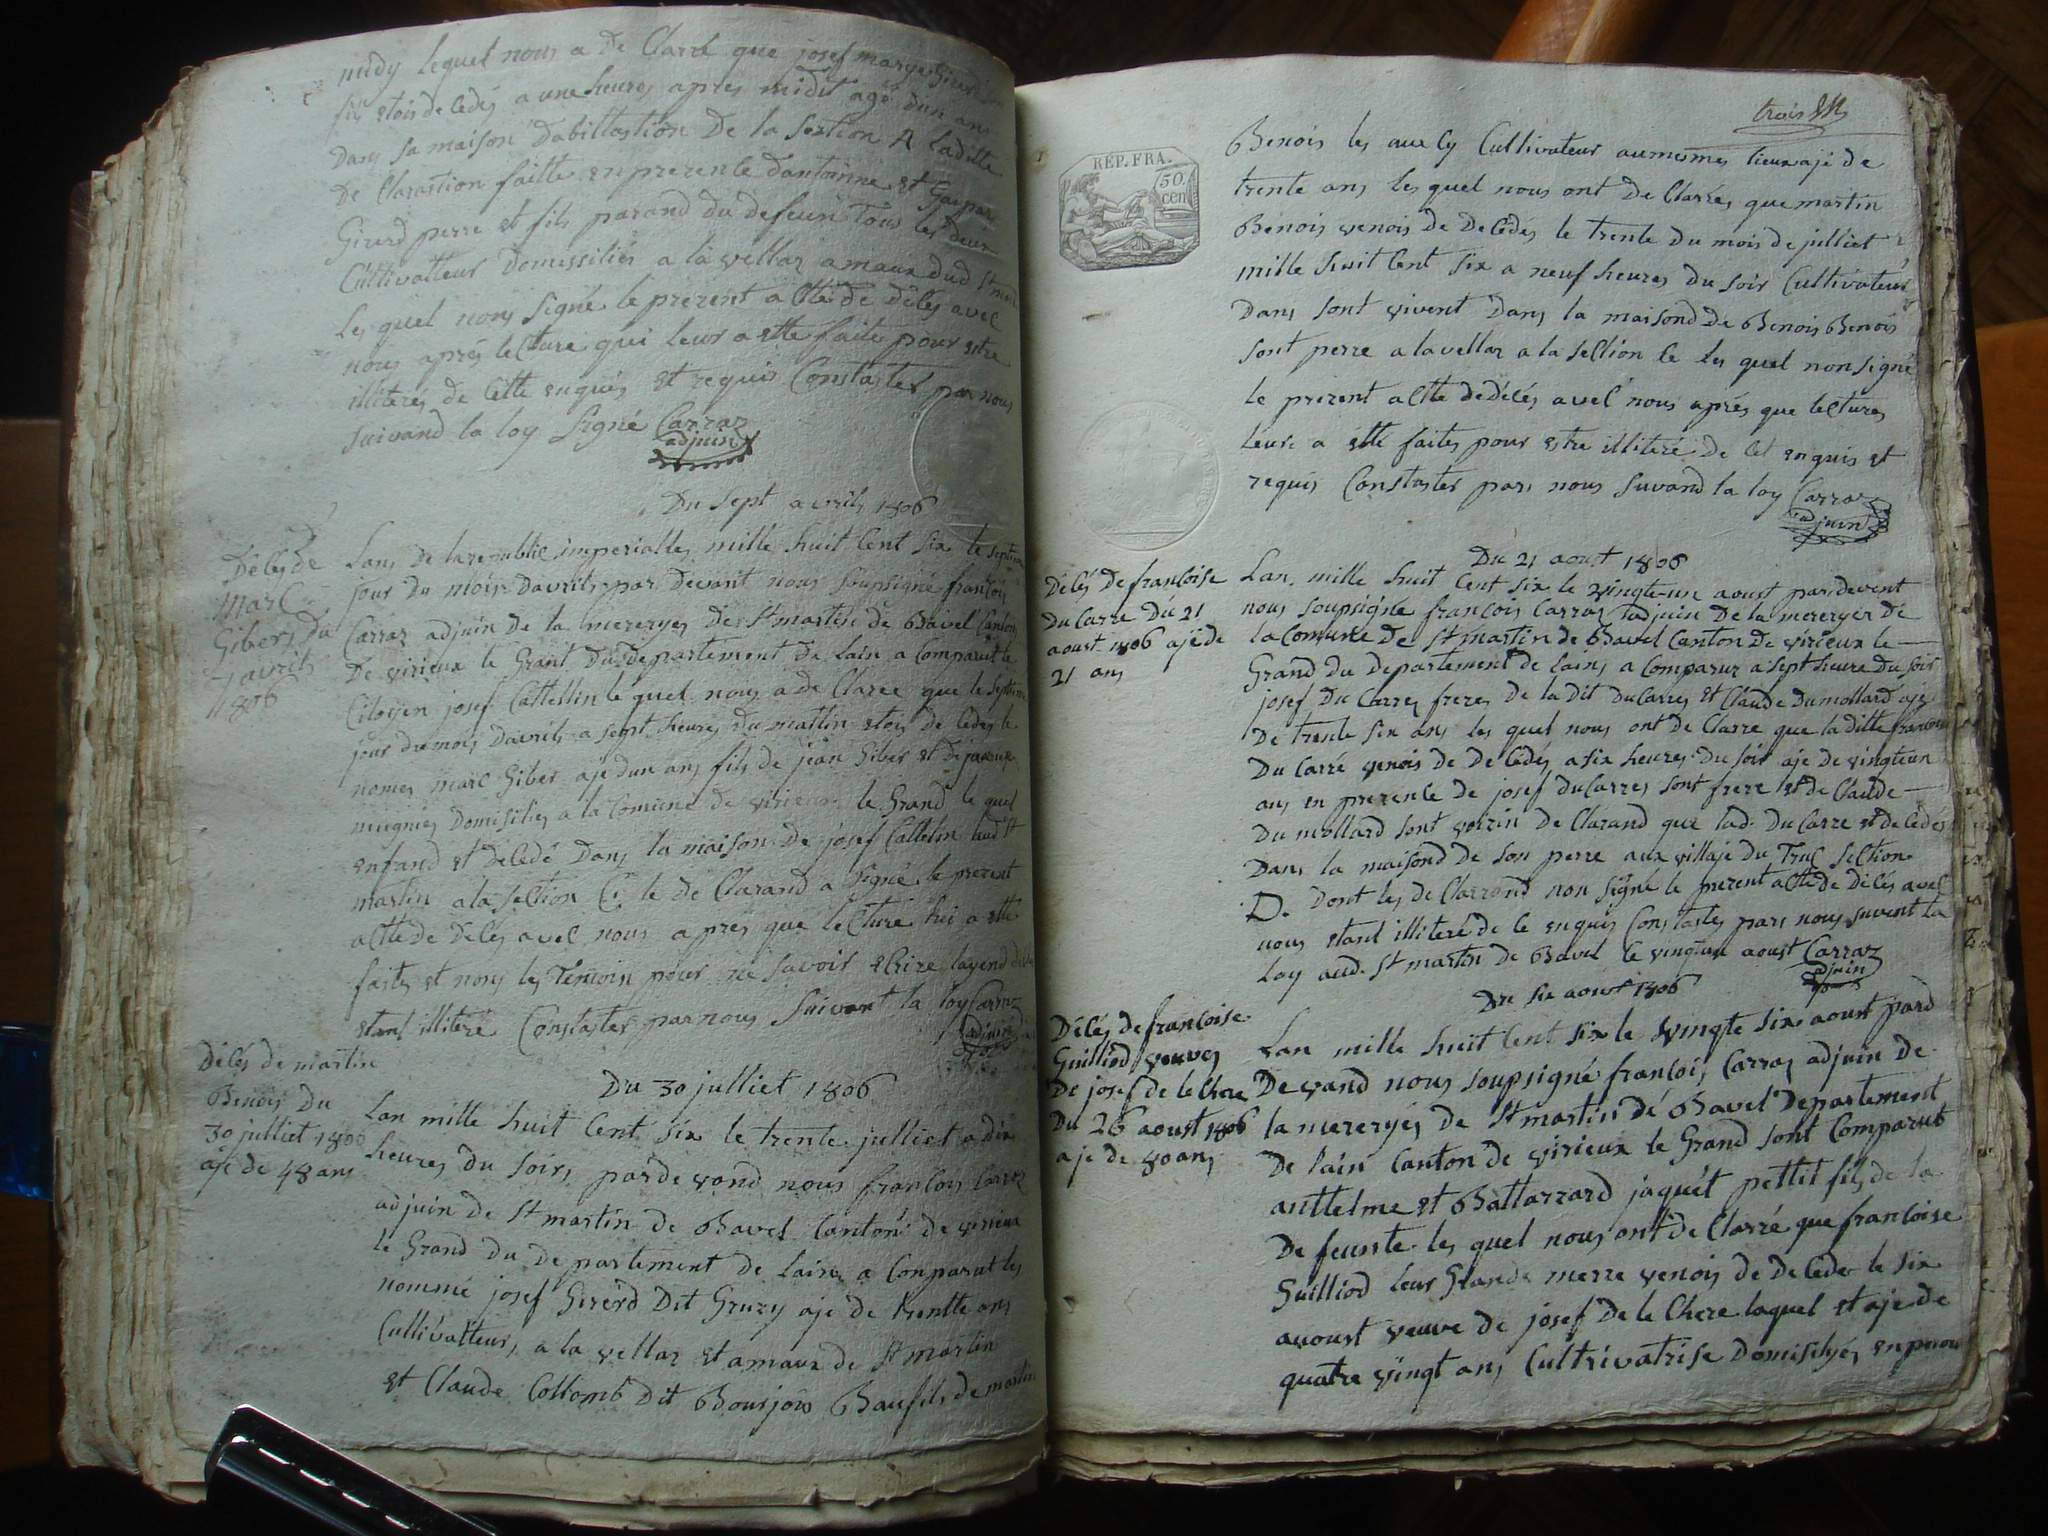 midy lequel nous a De Clarré que josef marye Girerd son
fils etois de Cedés a une heures apres midit agé dun ans
Dans sa maison Dabittastion De la section A Laditte
De Clarastion faitte enprezente dantoinne et Gaspar
Girerd perre et fils parand du defeun Tous les deux
Cultivatteur Domissiliés a la vellaz amaux dud St martin
Les quel nons signé le prezent actte de déles avec
nous aprés lecture qui leur a ette faite pour estre
illiteres de cette enquis et requis Constaster par nous
suivand la loy signé Carraz
adjuin
Du sept avrils 1806
Déles de
Marc
Giber du
7 avrils
1806
Lans de la republic imperialles mille huit Cent six le septieme
jour du mois davrils par devant nous soupsigné francois
Carraz adjuin de la mereryes de St martin de Bavel Canton
De virieux le Grant Du Departement De lain a Comparut le
Citoyen josef Cattellin lequel nous a de Claree que le septieme
jour dumois Davrils a sept heures du mattin etois de Cedes le
nomes marc Giber aje dun ans fils de jean Giber et De
mugniés Domisilies a la Comune de virieux le Grand le quel
enfand et décédé Dans la maison De josef Cattelin aud St
martin a la section C. le de Clarand a signé le prezent
actte de déles avec nous apres que lecture lui a ette
faites et nons les temoin pour ne savoir ecrire layend de
etant illiteré Constaster par nous suivant la loy Carraz
adjuin
Déles de martin
Benois Du
30 julliet 1806
aje de 48 ans
Du 30 julliet 1806
Lan mille huit Cent six le trente julliet a dix
heures du soirs pardevand nous francois Carraz
adjuin de St martin de Bavel Cantoné de virieux
le Grand du departement de lain a Conparut les
nommé josef Girerd Dit Gruzy aje de trentte ans
Cultivatteurs a la vellaz et amaux de St martin
et Claude Collomb Dit Bourjois Baufils de martin
trois
REP. FRA.
50
cen
Benois les aucly Cultivateur aumesmes lieux ajé de
trente ans les quel nous ont De Clarrés que martin
Benois venois de De Cédés le trente Du mois de julliet
mille huit Cent six a neuf heures du soir Cultivateur
Dans sont vivent Dans la maisond De Benois Benois
sont perre a lavellaz a la section C Les quel non signé
le prezent actte dedélés avec nous aprés que lectures
leurs a etté faites pour estre illiteré de Cet enquis et
requis Constaster pars nous suvand la loy Carraz
adjuin
Déles de francoise
du Carre Du 21
aoust 1806 aje de
21 ans
Du 21 aoust 1806
Lan mille huit Cent six le vingte-un aoust par devent
nous soupsigné francois Carraz adjuin De la mereryer de
la Comune de St martin de Bavel Canton De virieux le
Grand du departement de lains a Comparux a sept heure du soir
josef Du Carre freres de la dit du Carres et Claude dumollard aje
De trente six ans les quel nous ont de Clarre que la ditte francoise
Du Carré venois de De Cédés a six heures Du soir aje de vingteun
ans en prezente de josef duCarres sont frere et de Claude
Du mollard sont voizin de Clarand que lad. du Carre et de Cedés
Dans la maisond de son perre aux villaje du Truc section
D. Dont les de Clarrond non signé le prezent actte de délés avec
nous etant illiteré de le enquis Constastes pars nous suvent la
Loy aud. St martin de Bavel le vingtun aoust Carraz
adjuin
Délés de francoise
Guilliod veuves
De josef de le Chere
Du 26 aoust 1806
aje de 80 ans
Du six aoust 1806
Lan mille huit Cent six le vingte six aoust pard
De vand nous soupsigné francois Carraz adjuin de
la mereryés de St martin de Bavel Departement
De lain Canton de virieux le Grand sont Comparut
anttelme et Baltazzard jaquét pettit fils de la
De feunte les quel nous ont de Clarré que francoise
Guilliod leur Grande merre venois de De Cede le six
auoust veuve de josef De le Chere laquel et aje de
quatre vingt ans Cultrivatrise Domiscilyés